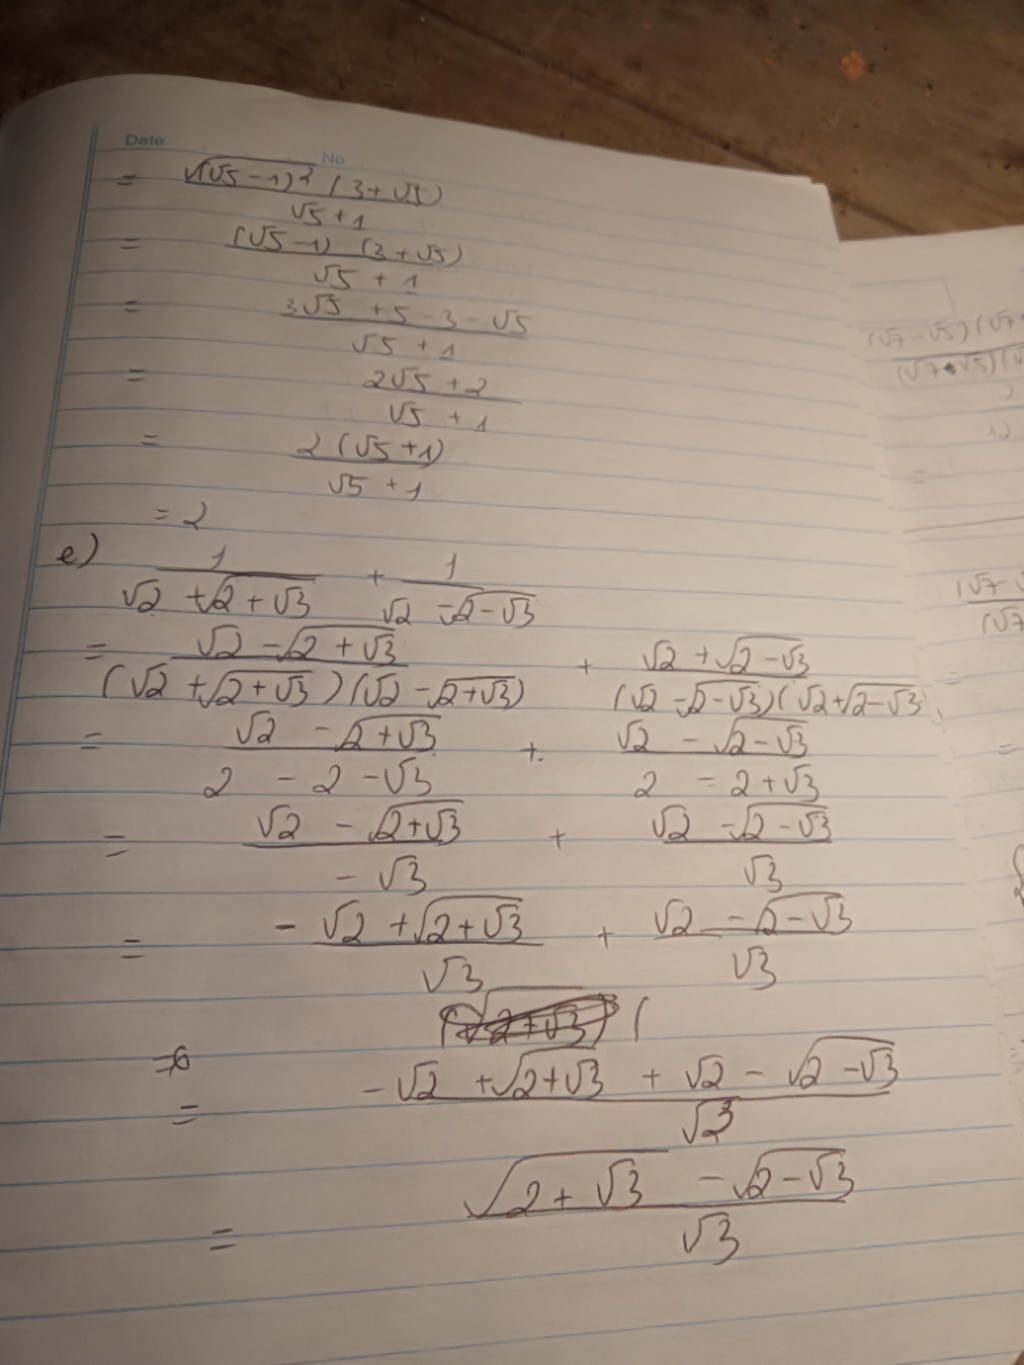 Date No
= √(√5 - 1)² (3 + √5) / √5 + 1
= (√5 - 1) (3 + √5) / √5 + 1
= 3√5 + 5 - 3 - √5 / √5 + 1
= 2√5 + 2 / √5 + 1
= 2 (√5 + 1) / √5 + 1
= 2
e) 1 / √2 + √(2 + √3) + 1 / √2 - √(2 - √3)
= √2 - √(2 + √3) / (√2 + √(2 + √3)) (√2 - √(2 + √3)) + √2 + √(2 - √3) / (√2 - √(2 - √3)) (√2 + √(2 - √3))
= √2 - √(2 + √3) / 2 - 2 - √3 + √2 - √(2 - √3) / 2 - 2 + √3
= √2 - √(2 + √3) / - √3 + √2 - √(2 - √3) / √3
= - √2 + √(2 + √3) / √3 + √2 - √(2 - √3) / √3
= - √2 + √(2 + √3) + √2 - √(2 - √3) / √3
= √(2 + √3) - √(2 - √3) / √3
(√7 - √5) (√7
(√7 √5) (√
(√7 -
(√7